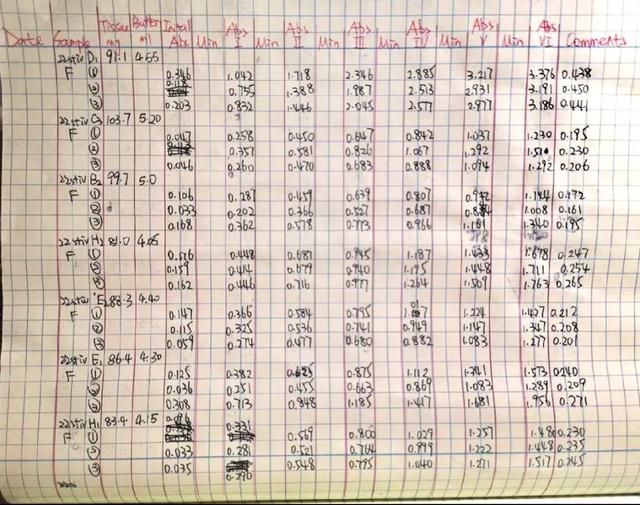 Date Sample Tissue mg Buffer ml Initial Abs Min Abs I Min Abs II Min Abs III Min Abs IV Min Abs V Min Abs VI Comments
22stiv D1 91.1 4.55
F ① 0.346 1.042 1.718 2.346 2.885 3.217 3.376 0.438
② 0.755 1.388 1.987 2.513 2.931 3.191 0.450
③ 0.203 0.832 1.446 2.045 2.577 2.977 3.186 0.441
22stiv C3 103.7 5.20
F ① 0.047 0.258 0.450 0.647 0.842 1.037 1.230 0.195
② 0.357 0.581 0.826 1.067 1.292 1.510 0.230
③ 0.046 0.260 0.470 0.683 0.888 1.094 1.292 0.206
22stiv B2 99.7 5.0
F ① 0.106 0.287 0.459 0.639 0.807 1.144 0.172
② 0.033 0.202 0.366 0.527 0.687 1.008 0.161
③ 0.168 0.362 0.578 0.773 0.966 1.161 1.340 0.195
22stiv H2 81.0 4.05
F ① 0.176 0.448 0.687 0.945 1.187 1.433 1.678 0.247
② 0.159 0.414 0.679 0.940 1.195 1.448 1.711 0.254
③ 0.162 0.446 0.716 0.977 1.264 1.509 1.763 0.265
22stiv E2 88.3 4.40
F ① 0.147 0.366 0.584 0.795 1.224 1.427 0.212
② 0.115 0.325 0.536 0.741 0.949 1.147 1.347 0.208
③ 0.059 0.274 0.477 0.680 0.882 1.083 1.277 0.201
22stiv E1 86.4 4.30
F ① 0.125 0.382 0.625 0.875 1.112 1.341 1.573 0.240
② 0.036 0.251 0.455 0.663 0.869 1.083 1.289 0.209
③ 0.308 0.713 0.948 1.185 1.417 1.681 1.956 0.271
22stiv H1 83.4 4.15 0.096 0.331
F ① 0.569 0.800 1.029 1.257 1.480 0.230
② 0.033 0.281 0.521 0.764 0.999 1.222 1.448 0.235
③ 0.035 0.548 0.795 1.040 1.271 1.517 0.245
0.290